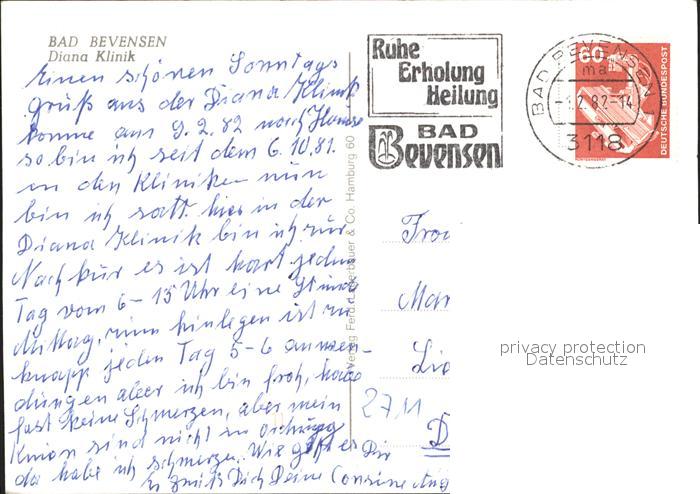 BAD BEVENSEN
Diana Klinik
Einen schönen Sonntags
gruß aus der Diana Klinik
komme am 9.2.82 nach Hause
so bin ich seit dem 6.10.81.
in den Kliniken nun
bin ich satt. hier in der
Diana Klinik bin ich zur
Nachkur es ist hart jeden
Tag vom 6-15 Uhr eine Stunde
Mittag, zum hinlegen ist zu
knapp jeden Tag 5-6 anwen-
dungen aber ich bin froh, habe
fast keine Schmerzen, aber mein
sind nicht in
da habe ich schmerzen. Wie geht es Dir
Es grüßt Dich Deine Cousine
Verlag Ferd. Lagerbauer & Co. Hamburg 60
Ruhe
Erholung
Heilung
BAD
Bevensen
BAD BEVENSEN 1
ma
-1.2.82-14
3118
60
DEUTSCHE BUNDESPOST
Frau
Mar
Lie
27 11
D
privacy protection
Datenschutz